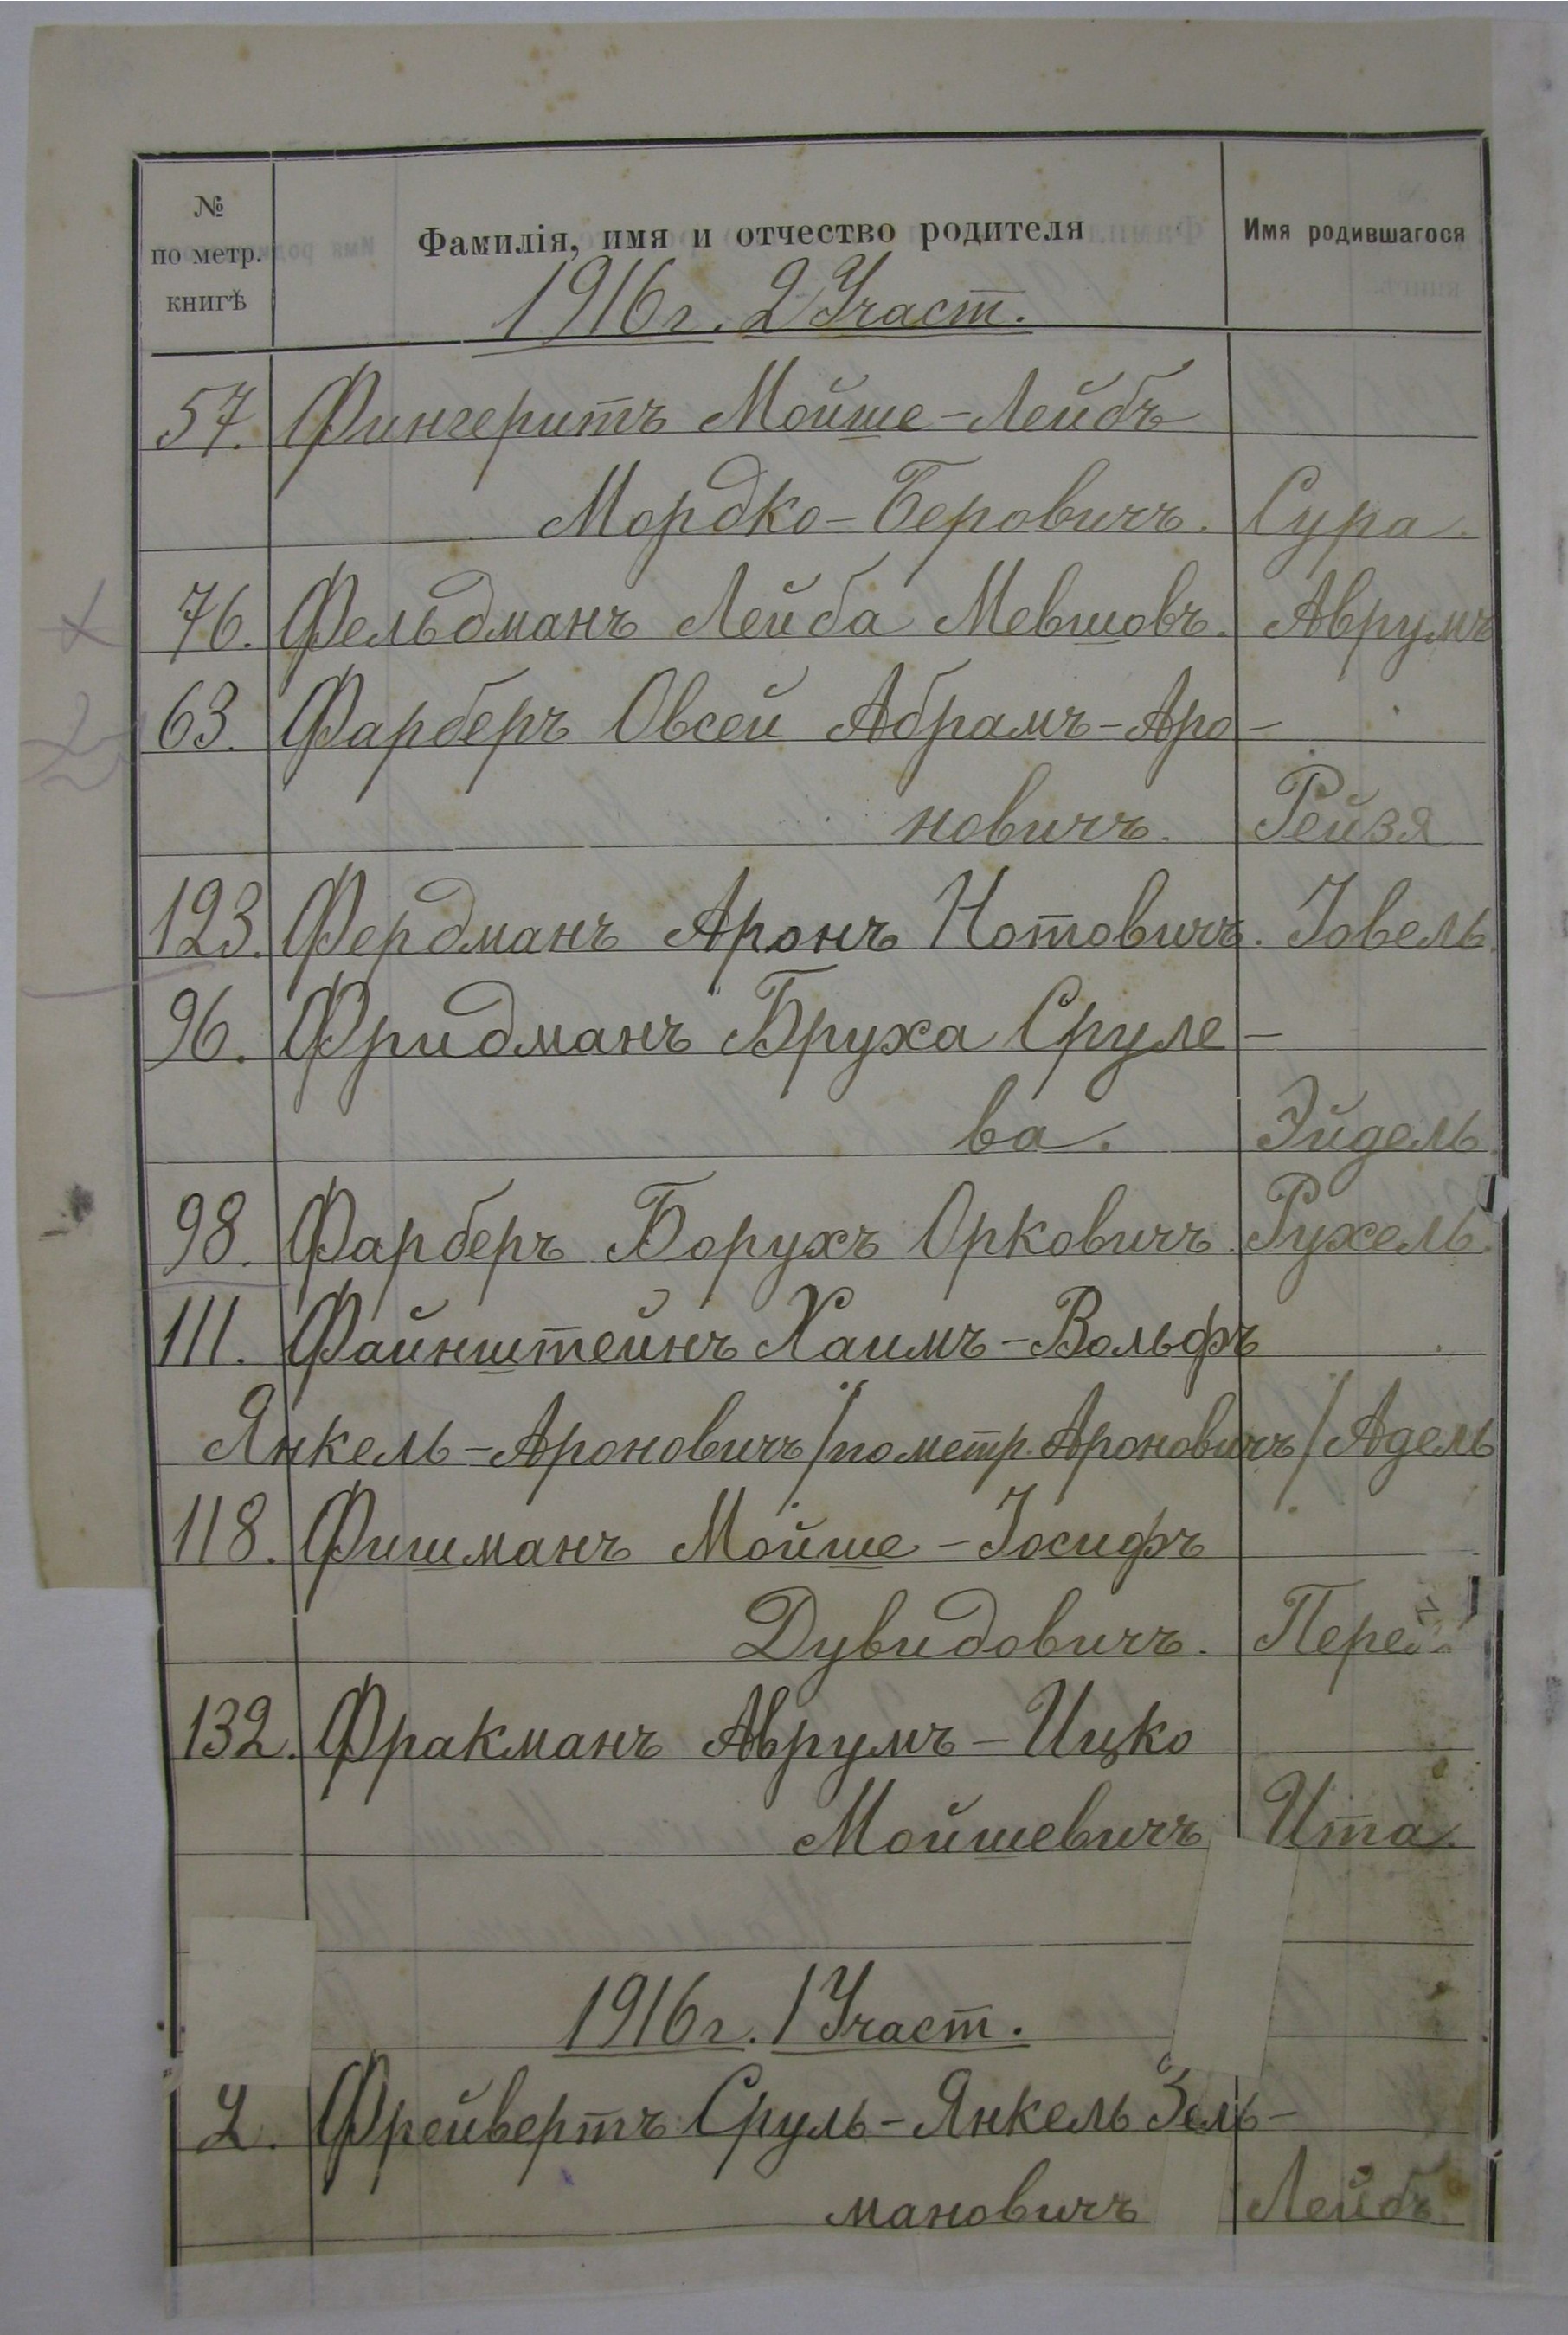 № по метр. книгѣ Фамилія, имя и отчество родителя Имя родившагося
1916 г. 2 Участ.
57. Фингеритъ Мойше-Лейбъ
Мордко-Беровичъ. Сура.
76. Фельдманъ Лейба Мевшовъ. Аврумъ
63. Фарберъ Овсей Абрамъ-Аро-
новичъ. Рейзя
123. Фердманъ Аронъ Нотовичъ. Іовель.
96. Фридманъ Бруха Сруле-
ва. Эйдель.
98. Фарберъ Борухъ Орковичъ. Рухель.
111. Файнштейнъ Хаимъ-Вольфъ
Янкель-Ароновичъ/по метр. Ароновичъ/ Адель
118. Фишманъ Мойше-Іосифъ
Дувидовичъ.
132. Фракманъ Аврумъ-Ицко
Мойшевичъ Ита.
1916 г. 1 Участ.
2. Фрейвертъ Сруль-Янкель Зель-
мановичъ Лейбъ